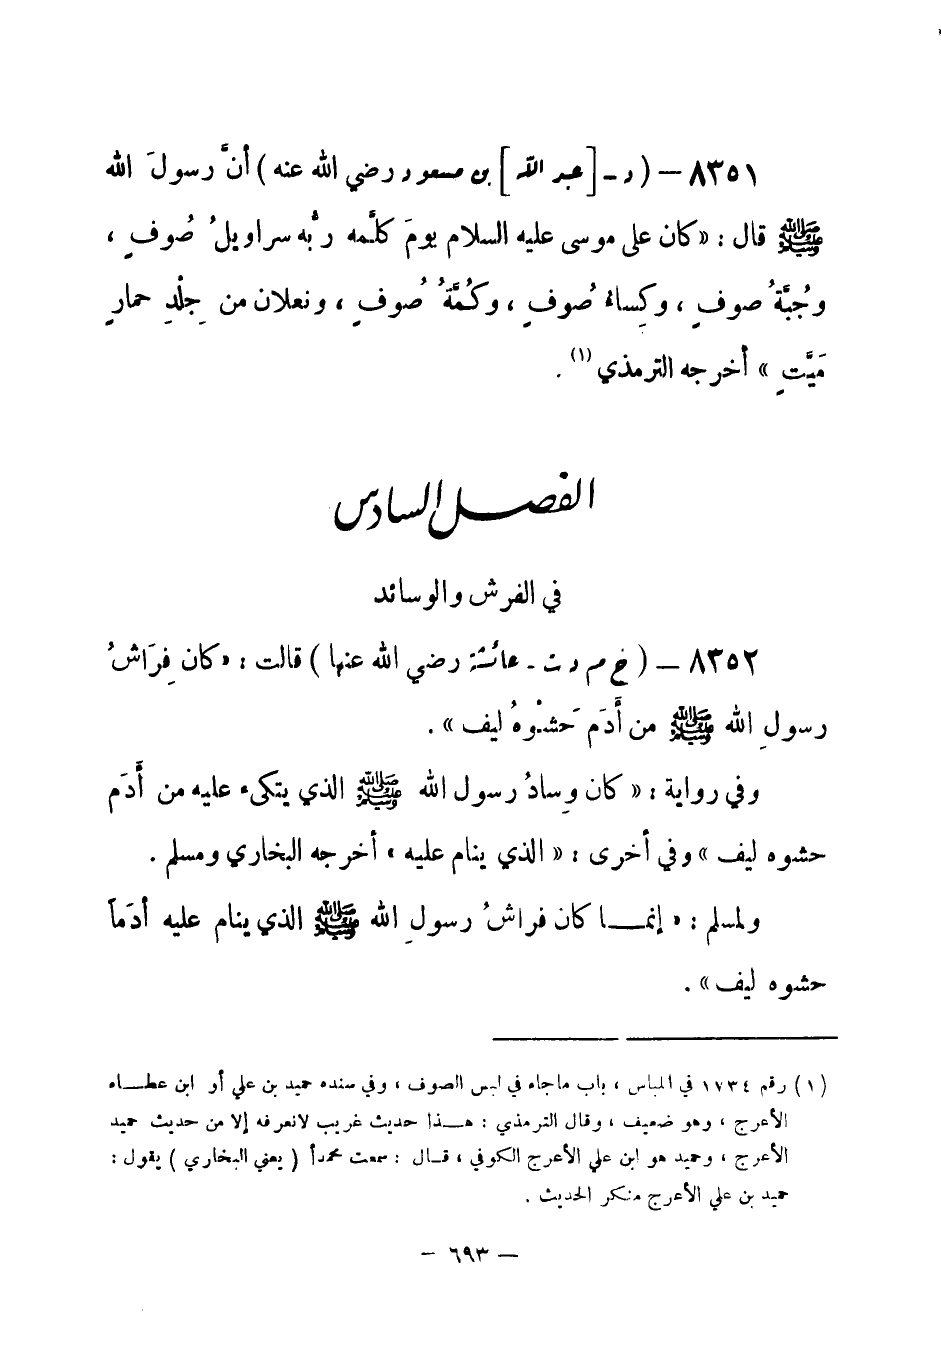 ٨٣٥١ – ( د - [ عبد الله ] بن مسعود رضي الله عنه ) أنَّ رسولَ الله
ﷺ قال : « كان على موسى عليه السلام يومَ كلَّمه ربُّه سراويلُ صُوفٍ ،
وجُبَّةُ صوفٍ ، وكِساءُ صُوفٍ ، وكُمَّةُ صُوفٍ ، ونعلان من جِلْدِ حمارٍ
مَيَّتٍ » أخرجه الترمذي (١) .
الفصل السادس
في الفرش والوسائد
٨٣٥٢ – ( خ م د ت - عائشة رضي الله عنها ) قالت : « كان فِرَاشُ
رسولِ الله ﷺ من أَدَم حَشْوُهُ ليف » .
وفي رواية : « كان وِسادُ رسول الله ﷺ الذي يتكىء عليه من أَدَم
حشوه ليف » وفي أخرى : « الذي ينام عليه » أخرجه البخاري ومسلم .
ولمسلم : « إنما كان فراشُ رسولِ الله ﷺ الذي ينام عليه أدَماً
حشوه ليف » .
(١) رقم ١٧٣٤ في اللباس ، باب ماجاء في لبس الصوف ، وفي سنده حميد بن علي أو ابن عطاء
الأعرج ، وهو ضعيف ، وقال الترمذي : هذا حديث غريب لانعرفه إلا من حديث حميد
الأعرج ، وحميد هو ابن علي الأعرج الكوفي ، قال : سمعت محمداً ( يعني البخاري ) يقول :
حميد بن علي الأعرج منكر الحديث .
– ٦٩٣ –